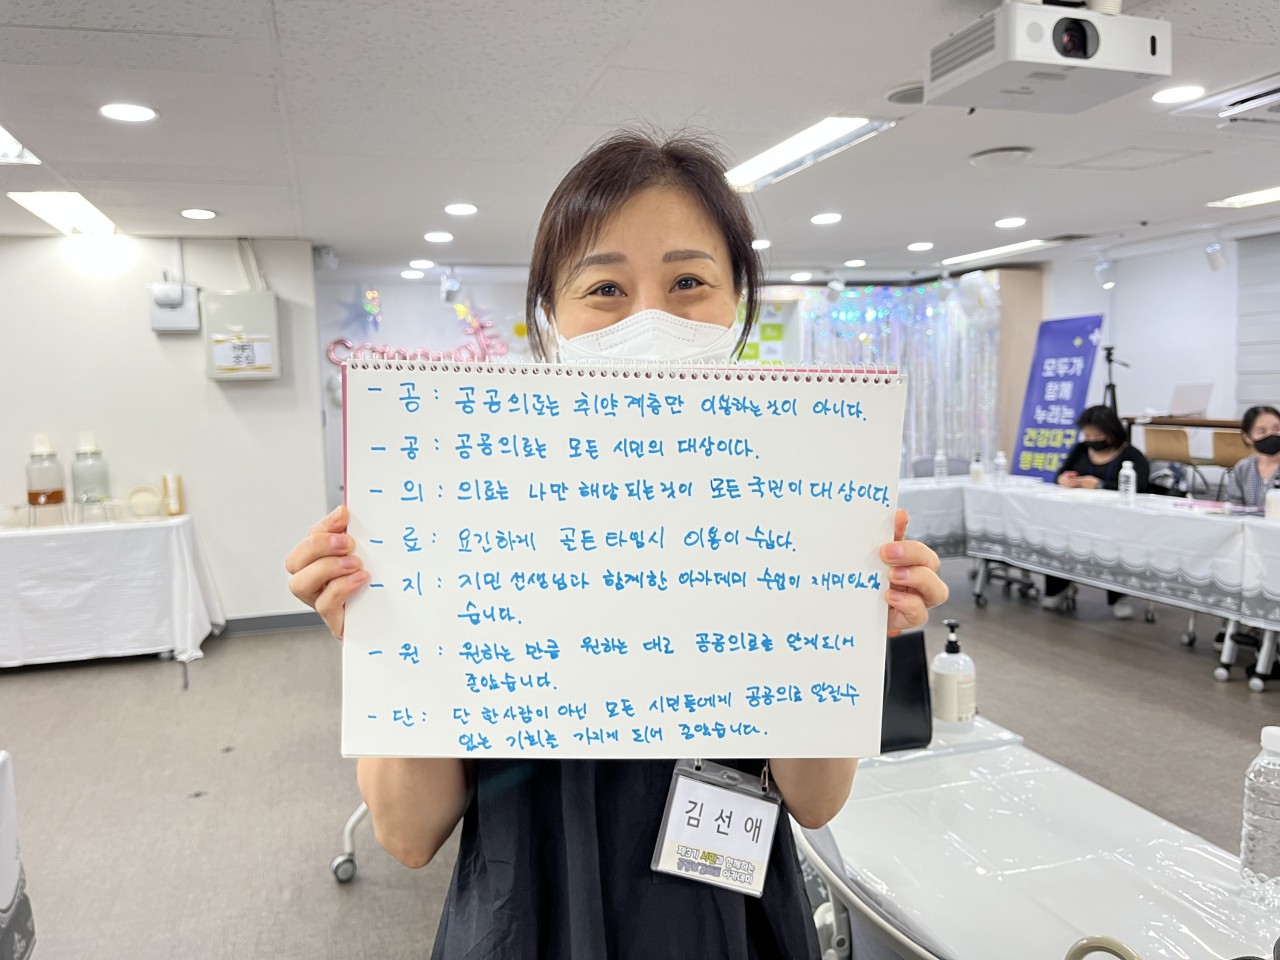 - 공 : 공공의료는 취약계층만 이용하는것이 아니다.
- 공 : 공공의료는 모든 시민의 대상이다.
- 의 : 의료는 나만 해당되는것이 모든국민이대상이다.
- 료 : 요긴하게 골든타임시 이용이 쉽다.
- 지 : 지민선생님과 함께한 아카데미 수업이 재미있었
습니다.
- 원 : 원하는 만큼 원하는 대로 공공의료를 알게되어
좋았습니다.
- 단 : 단 한사람이 아닌 모든 시민들에게 공공의료 알릴수
있는 기회를 가지게 되어 좋았습니다.
김선애
제3기 시민과 함께하는
공공보건의료 아카데미
모두가
함께
누리는
건강대구
행복대구